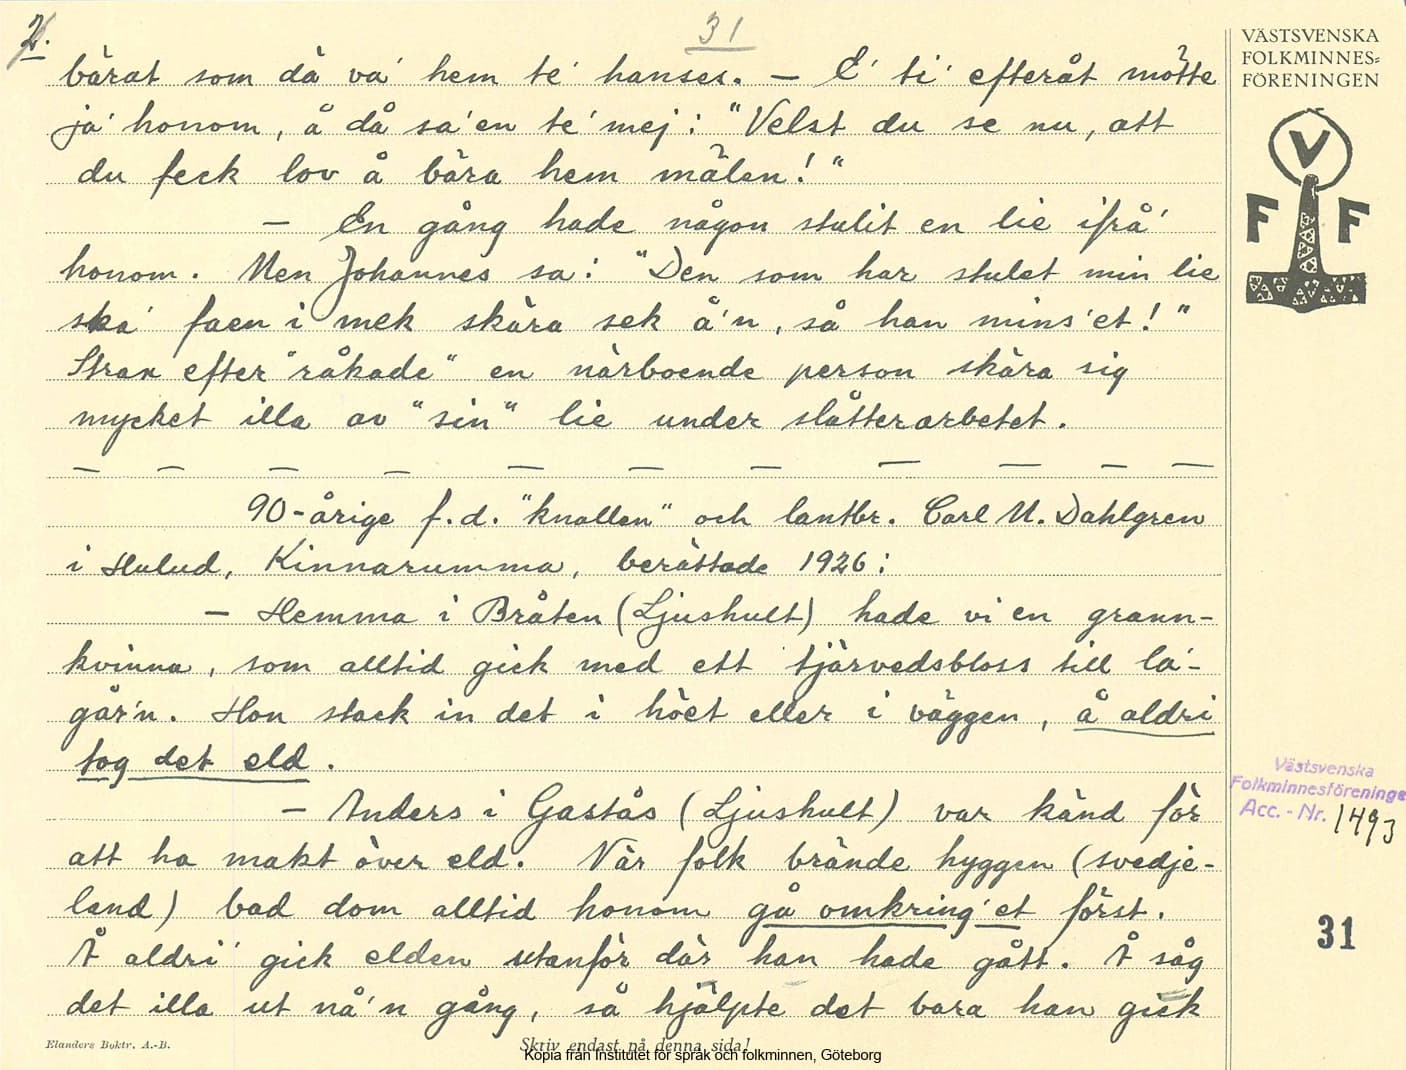 2.
31
VÄSTSVENSKA
FOLKMINNES-
FÖRENINGEN
V
F F
bärat som då va' hem te' hanses. — E' ti' efteråt mötte
ja' honom, å då sa' en te' mej: "Velst du se nu, att
du feck lov å bära hem mälen!"
— En gång hade någon stulit en lie ifrå'
honom. Men Johannes sa: "Den som har stulet min lie
ska' faen i mek skära sek å'n, så han mins'et!"
Strax efter "råkade" en närboende person skära sig
mycket illa av "sin" lie under slåtterarbetet.
— — — — — — — — — — —
90-årige f.d. "knallen" och lantbr. Carl M. Dahlgren
i Hulud, Kinnarumma, berättade 1926:
— Hemma i Bråten (Ljushult) hade vi en grann-
kvinna, som alltid gick med ett tjärvedsbloss till la'-
går'n. Hon stack in det i höet eller i väggen, å aldri
tog det eld.
— Anders i Gastås (Ljushult) var känd för
att ha makt över eld. När folk brände hyggen (svedje-
land) bad dom alltid honom gå omkring'et först.
Å aldri' gick elden utanför där han hade gått. Å såg
det illa ut nå'n gång, så hjälpte det bara han gick
Västsvenska
Folkminnesföreningen
Acc. - Nr. 1493
31
Elanders Boktr. A.-B.
Skriv endast på denna sida!
Kopia från Institutet för språk och folkminnen, Göteborg